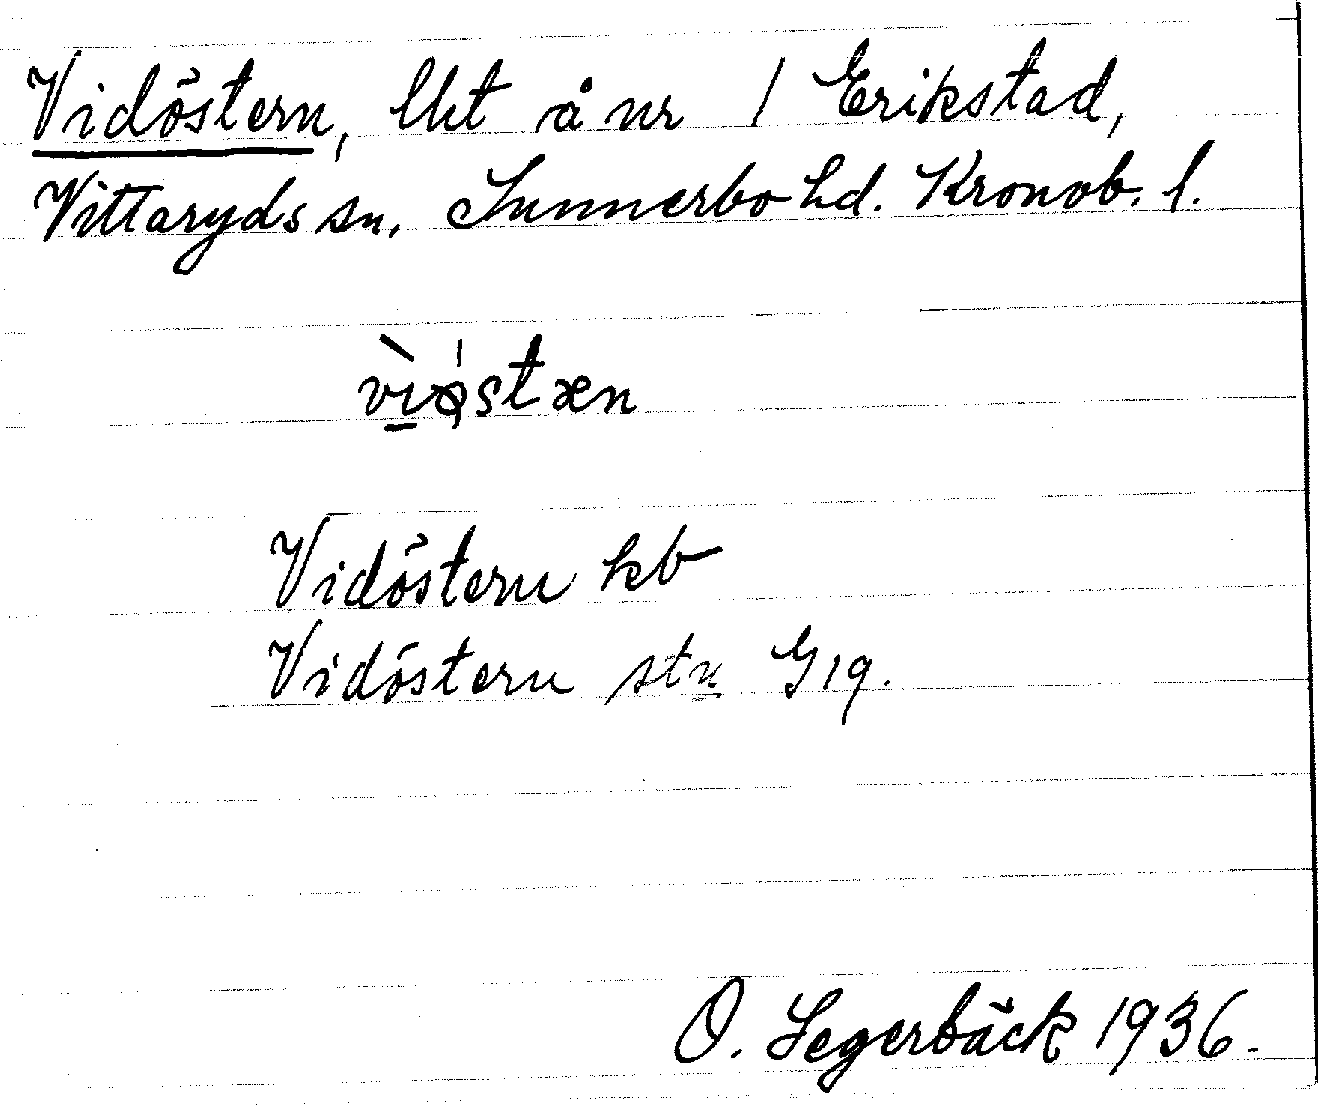 Vidöstern, lht å nr 1 Erikstad,
Vittaryds sn. Sunnerbo hd. Kronob. l.
Vidöstern kb
Vidöstern stn G19.
O. Segerbäck 1936.